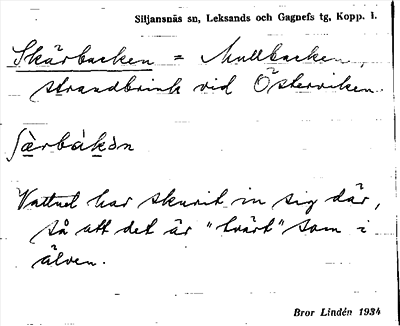 Siljansnäs sn, Leksands och Gagnefs tg, Kopp. l.
Skärbacken = Mullbacken,
strandbrink vid Österviken.
ʃä̀rbàkən
Vattnet har skurit in sig där,
så att det är "tvärt" som i
älven.
Bror Lindén 1934